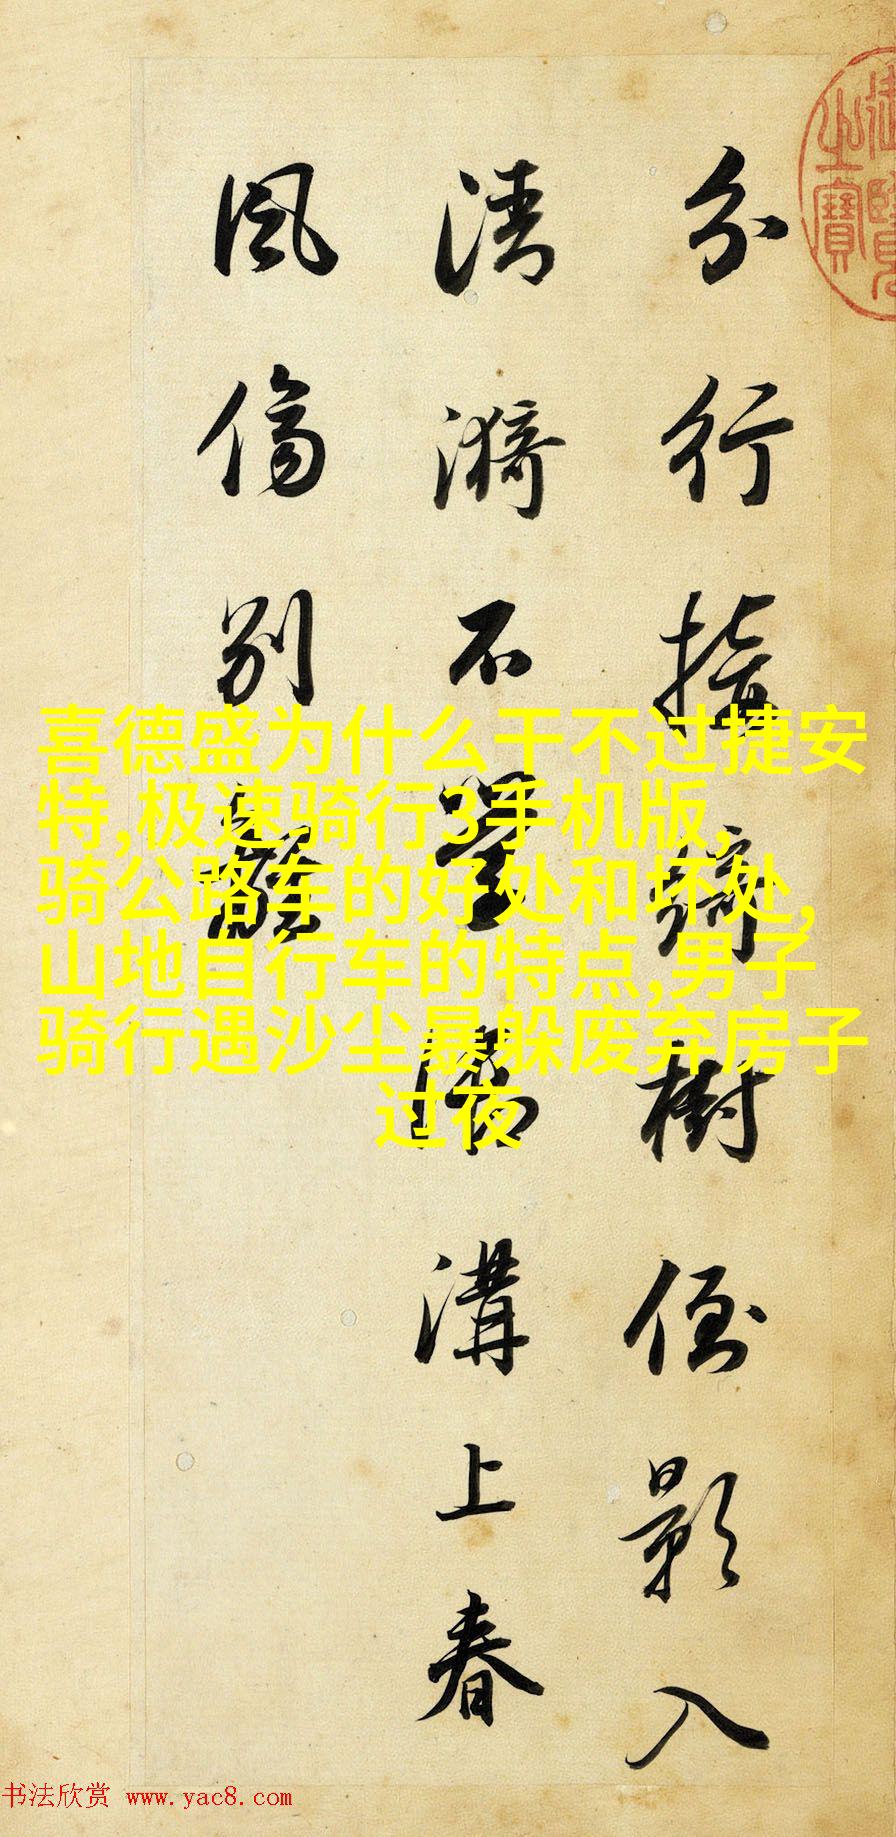 分行接綺樹倒影入
清漪不學御溝上春
風傷別離
御覽之寶
喜德盛为什么干不过捷安
特,极速骑行3手机版,
骑公路车的好处和坏处,
山地自行车的特点,男子
骑行遇沙尘暴躲废弃房子
过夜
书法欣赏 www.yac8.com